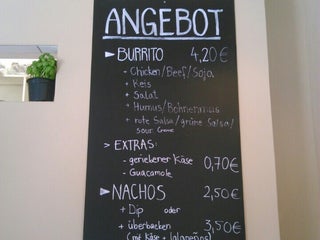 ANGEBOT
► BURRITO 4,20€
- Chicken/Beef/Soja
+ Reis
+ Salat
+ Humus/Bohnenmus
+ rote Salsa/grüne Salsa/
sour Creme
> EXTRAS:
- geriebener Käse 0,70€
- Guacamole
► NACHOS 2,50€
+ Dip oder
+ überbacken 3,50€
(mit Käse + Jalapeños)